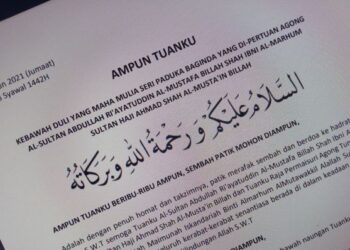 un 2021 (Jumaat)
Syawal 1442H
AMPUN TUANKU
KEBAWAH DULI YANG MAHA MULIA SERI PADUKA BAGINDA YANG DI-PERTUAN AGONG
AL-SULTAN ABDULLAH RI'AYATUDDIN AL-MUSTAFA BILLAH SHAH IBNI AL-MARHUM
SULTAN HAJI AHMAD SHAH AL-MUSTA'IN BILLAH
السَّلَامُ عَلَيْكُمْ وَرَحْمَةُ اللهِ وَبَرَكَاتُهُ
AMPUN TUANKU BERIBU-RIBU AMPUN, SEMBAH PATIK MOHON DIAMPUN,
Adalah dengan penuh homat dan takzimnya, patik merafak sembah dan berdoa ke hadrat
S.W.T semoga Tuanku Al-Sultan Abdullah Ri'ayatuddin Al-Mustafa Billah Shah
Haji Ahmad Shah Al-Musta'in Billah dan Tuanku Raja Permaisuri Agong Tunku
Maimunah Iskandariah binti Almarhum AlMutawakkil Alallah
kerabat kerabat senantiasa berada di dalam keadaan
S.W.T